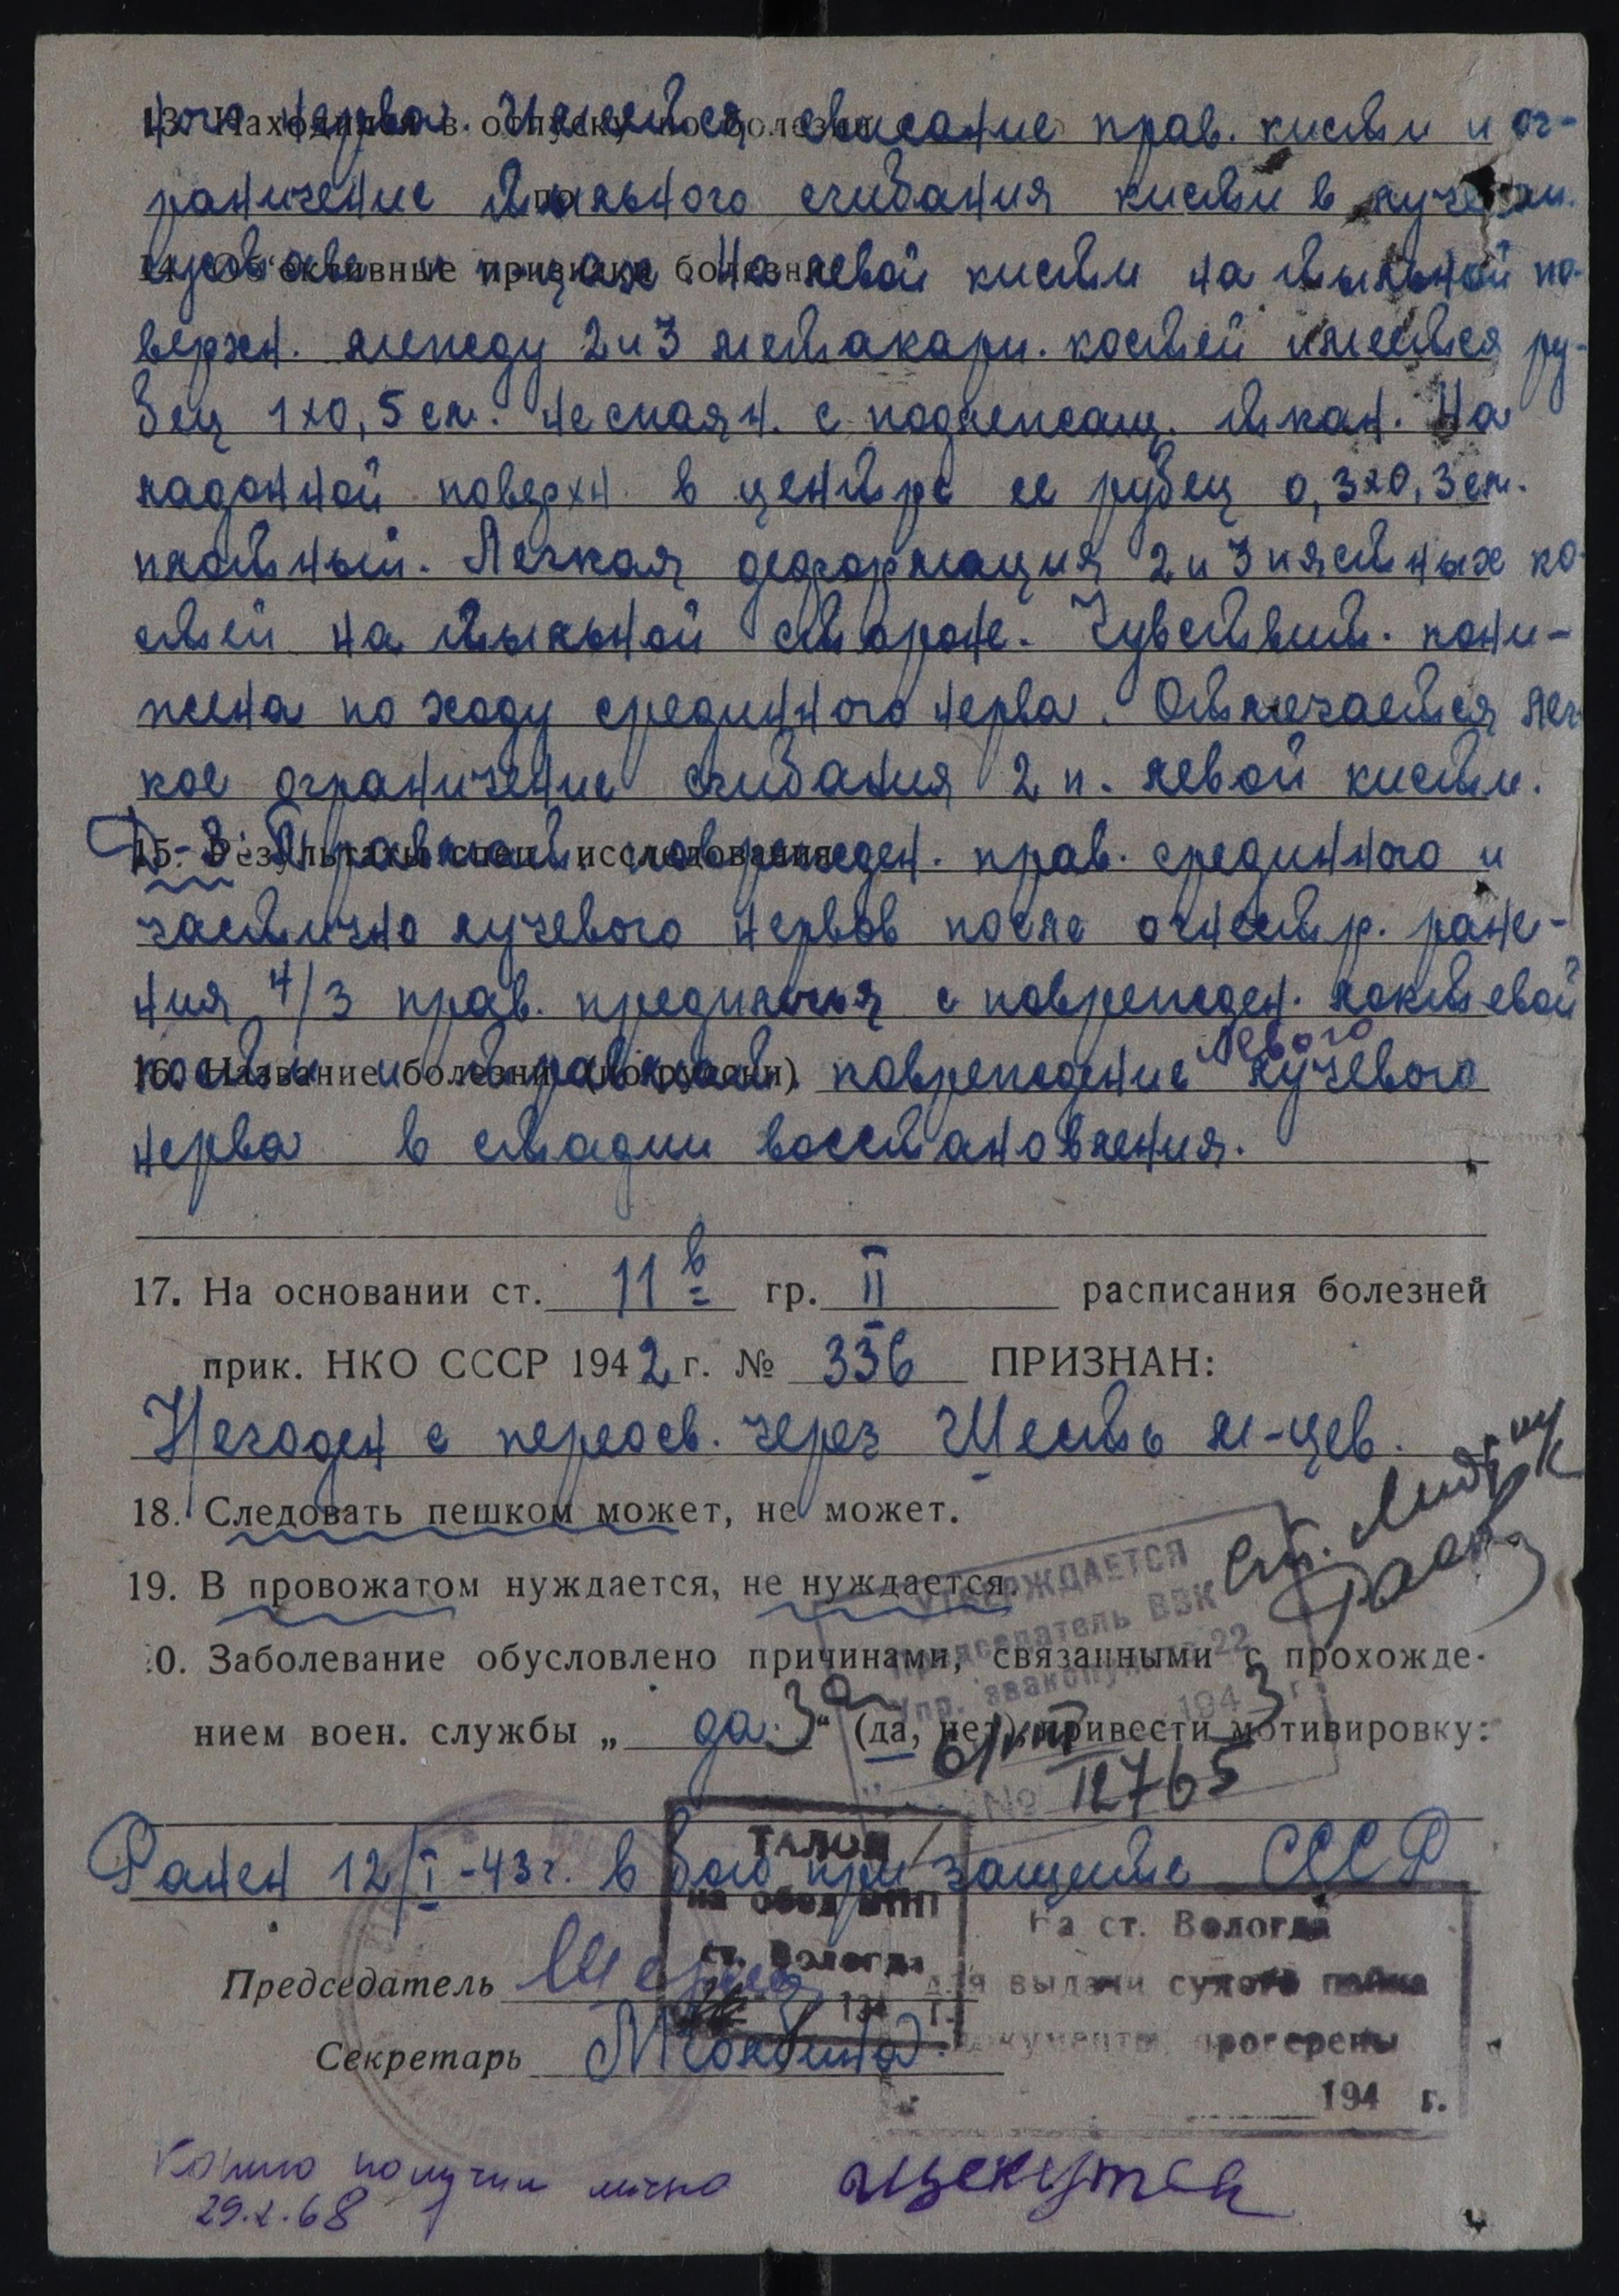 ного нерва. Имеется свисание прав. кисти и ог-
13. Находился в отпуску по болезни
раничение тыльного сгибания кисти в лучезап.
по
суставе и пальцах. На левой кисти на тыльной по-
14. Об'ективные признаки болезни
верхн. между 2 и 3 метакарп. костей имеется ру-
бец 1х0,5 см. не спаян. с подлежащ. ткан. На
ладонной поверхн. в центре ее рубец 0,3х0,3 см.
плотный. Легкая деформация 2 и 3 пястных ко-
стей на тыльной стороне. Чувствит. пони-
жена по ходу срединного нерва. Отмечается лег-
кое ограничение сгибания 2 п. левой кисти.
Д-з: Травматич. поврежден. прав. срединного и
15. Результаты спец. исследования
частично лучевого нервов после огнестр. ране-
ния н/3 прав. предплечья с поврежден. локтевой
левого
кости и травматич. повреждение лучевого
16. Название болезни (по-русски)
нерва в стадии восстановления.
17. На основании ст. 11 в гр. II расписания болезней
прик. НКО СССР 1942 г. № 336 ПРИЗНАН:
Негоден с переосв. через Шесть м-цев.
18. Следовать пешком может, не может.
19. В провожатом нуждается, не нуждается
УТВЕРЖДАЕТСЯ
Председатель ВВК
Упр. эвакопункта 22
1943 г.
№ 12765
20. Заболевание обусловлено причинами, связанными с прохожде-
нием воен. службы „ да “ (да, нет) привести мотивировку:
Ранен 12/I-43 г. в бою при защите СССР
ТАЛОН
на обед ВПП
ст. Вологда
194 г.
На ст. Вологда
для выдачи сухого пайка
документы проверены
194 г.
Председатель
Секретарь
Копию получил лично
29.2.68